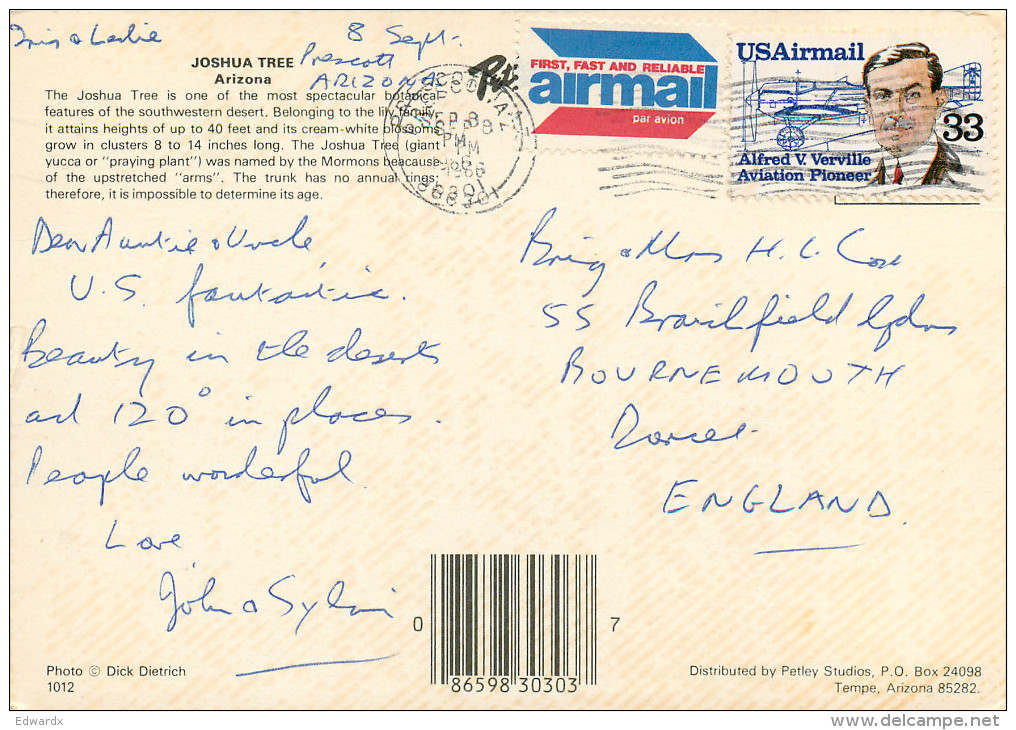 Iris & Leslie
8 Sept.
Prescott
ARIZONA
JOSHUA TREE
Arizona
The Joshua Tree is one of the most spectacular botanical
features of the southwestern desert. Belonging to the lily family,
it attains heights of up to 40 feet and its cream-white blossoms
grow in clusters 8 to 14 inches long. The Joshua Tree (giant
yucca or "praying plant") was named by the Mormons beacause
of the upstretched "arms". The trunk has no annual rings;
therefore, it is impossible to determine its age.
FIRST, FAST AND RELIABLE
airmail
par avion
USAirmail
33
Alfred V. Verville
Aviation Pioneer
SEP 8
PM
1986
86301
Dear Auntie & Uncle
U.S. fantastic.
Beauty in the deserts
and 120° in places.
People wonderful.
Love
John & Sylvia
Brig & Mrs H. C.
55 Gdns
BOURNEMOUTH
Dorset
ENGLAND.
0 86598 30303 7
Photo © Dick Dietrich
1012
Distributed by Petley Studios, P.O. Box 24098
Tempe, Arizona 85282.
Edwardx
www.delcampe.net